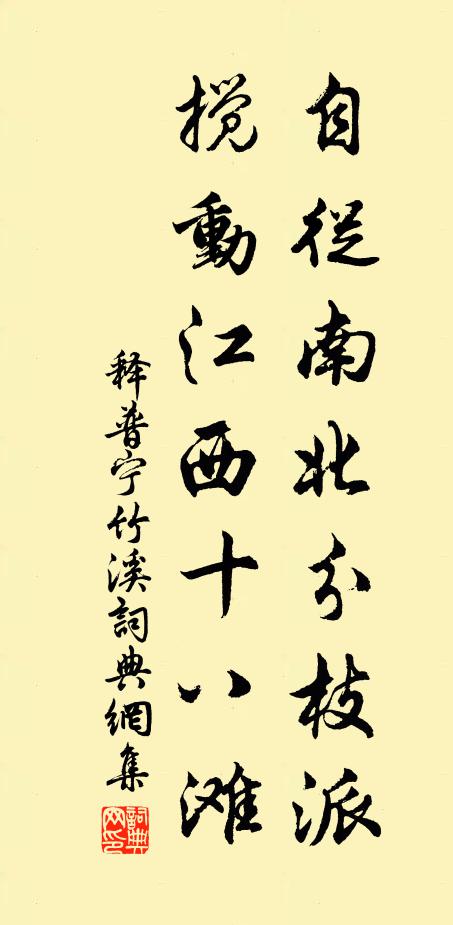 自從南北分枝派
攪動江西十八滩
释普宁竹溪詞典網集
詞典網印